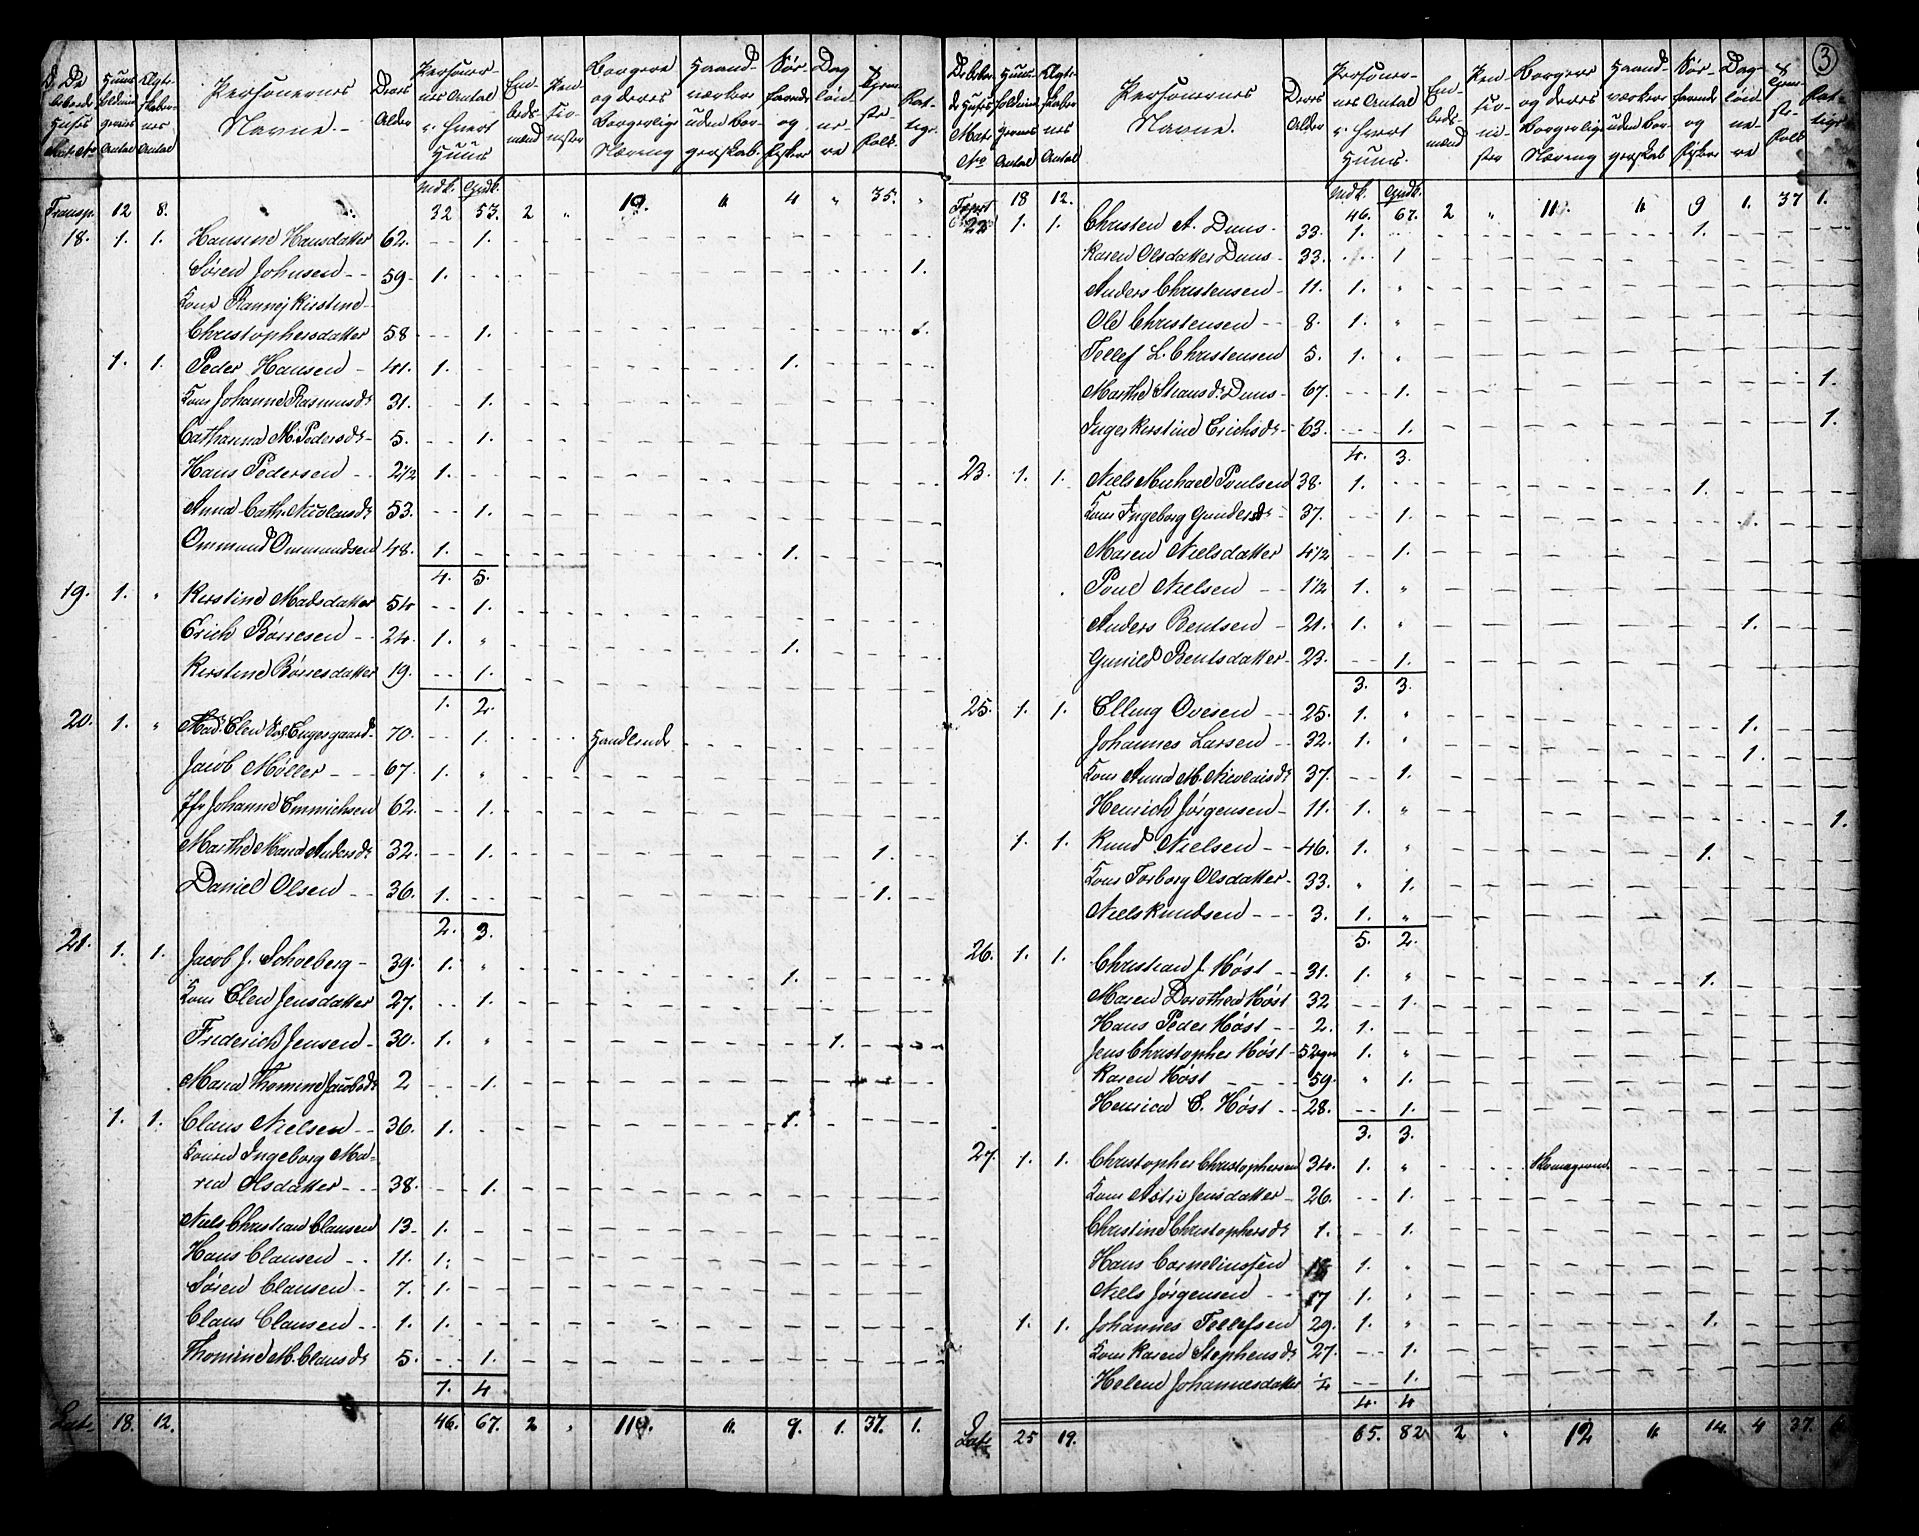 3
Personernes Navne Deres Alder Personernes Antal i hvert Huus Embedsmænd Pensionister Borgere og deres borgerlige Næring Haandværker uden Borgerskab Søefarende og Fisker Dagleiere Tjenestefolk Fattige
Mdk. Qvdk.
Transp. 12 8. 32 53. 2 " 10. " 4 " 35. "
18. 1. 1. Hansine Hansdatter 62. 1.
Søren Johnsen 59 1. 1.
Kone Rannej Kirstine
Christophersdatter 58 1. 1.
1. 1. Peder Hansen 41. 1. 1.
Kone Johanne Rasmusdr 31. 1.
Cathanna M. Pedersdr 5. 1.
Hans Pedersen 2 1/2 1.
Anna Cath. Nicolaisdr 53. 1.
Ommund Ommundsen 48. 1. 1.
4. 5.
19. 1. " Kirstine Madsdatter 54 1.
Erich Børresen 24. 1. " 1.
Kirstine Børresdatter 19. 1.
1. 2.
20. 1. " Mad. Elen Engersgaard 70. 1. Handlende
Jacob Møller 67. 1. "
Jfr Johanne Emmichsen 62. 1.
Marthe Maria Andersdr 32. 1. 1.
Daniel Olsen 36. 1. 1.
2. 3.
21. 1. 1. Jacob J. Scholberg 39. 1. " 1.
Kone Elen Jensdatter 27. 1.
Friderich Jensen 30. 1. " 1.
Maria Thomine Jacobsdr 2 1.
1. 1. Claus Nielsen 36. 1. 1.
Konen Ingeborg Maria
Olsdatter 38. 1.
Niels Christian Clausen 13. 1.
Hans Clausen 11. 1.
Søren Clausen 7. 1.
Claus Clausen 1. 1.
Thomine M. Clausdr 5. 1.
7. 4
Lat. 18. 12. 46. 67. 2 " 11. " 9. 1. 37. 1.
Personernes Navne. Deres Alder Personernes Antal i hvert Huus. Embedsmænd Pensionister Borgere og deres Borgerlige Næring Haandværker uden Borgerskab Søefarende og Fisker Dagleiere Tjenestefolk Fattige
Mdk. Qvdk.
Trsprt 18 12. 46. 67. 2 " 11. " 9 1. 37 1.
22 1. 1. Christen A. Duus 33. 1. 1.
Karen Olsdatter Duus 33. 1
Anders Christensen 11. 1. "
Ole Christensen 8. 1. "
Tellef L. Christensen 5. 1. "
Marthe Duus 67. 1. 1.
Inger Kirstine Erichsdr 63. 1. 1.
4. 3.
23. 1. 1. Niels Michael Poulsen 38. 1. 1.
Kone Ingeborg Gundersdr 37. 1.
Maren Nielsdatter 4 1/2 1.
Poul Nielsen 1 1/2 1. "
Anders Bentsen 21. 1. " 1.
Gunild Bentsdatter 23. 1.
3. 3.
25. 1. 1. Elling Ovesen 25. 1. " 1.
Johannes Larsen 32. 1. " 1.
Kone Anna M. Nicolaisdr 37. 1.
Henrich Jørgensen 11. 1. " 1.
1. 1. Knud Nielsen 46. 1. " 1.
Kone Torborg Olsdatter 33. " 1.
Niels Knudsen 3. 1. "
5. 2.
26. 1. 1. Christian J. Høst 31. 1. " 1.
Maren Dorothea Høst 32 1.
Hans Peder Høst 2. 1.
Jens Christopher Høst 1. "
Karen Høst 59. " 1.
Henrica C. Høst 28. 1.
3. 3.
27. 1. 1. Christopher Christophersen 34. 1. " Skomagersvend
Kone Astri Jensdatter 26. 1.
Christine Christophersdr 1. 1.
Hans Corneliussen 1. "
Niels Jørgensen 17 1. "
1. 1. Johannes Tellefsen 29. 1. " 1.
Kone Karen Stephensdr 27. 1.
Helene Johannesdatter 1/4 1.
4. 4
Lat. 25 19. 65. 82 2 " 12 " 14. 4 37.